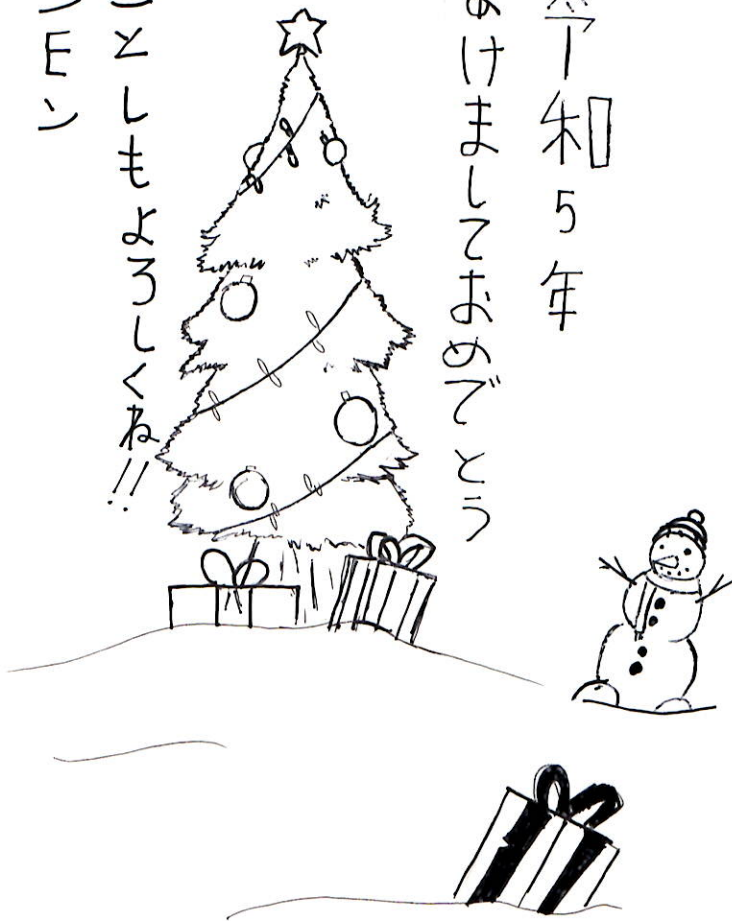 令和5年
あけましておめでとう
ことしもよろしくね!!
モン